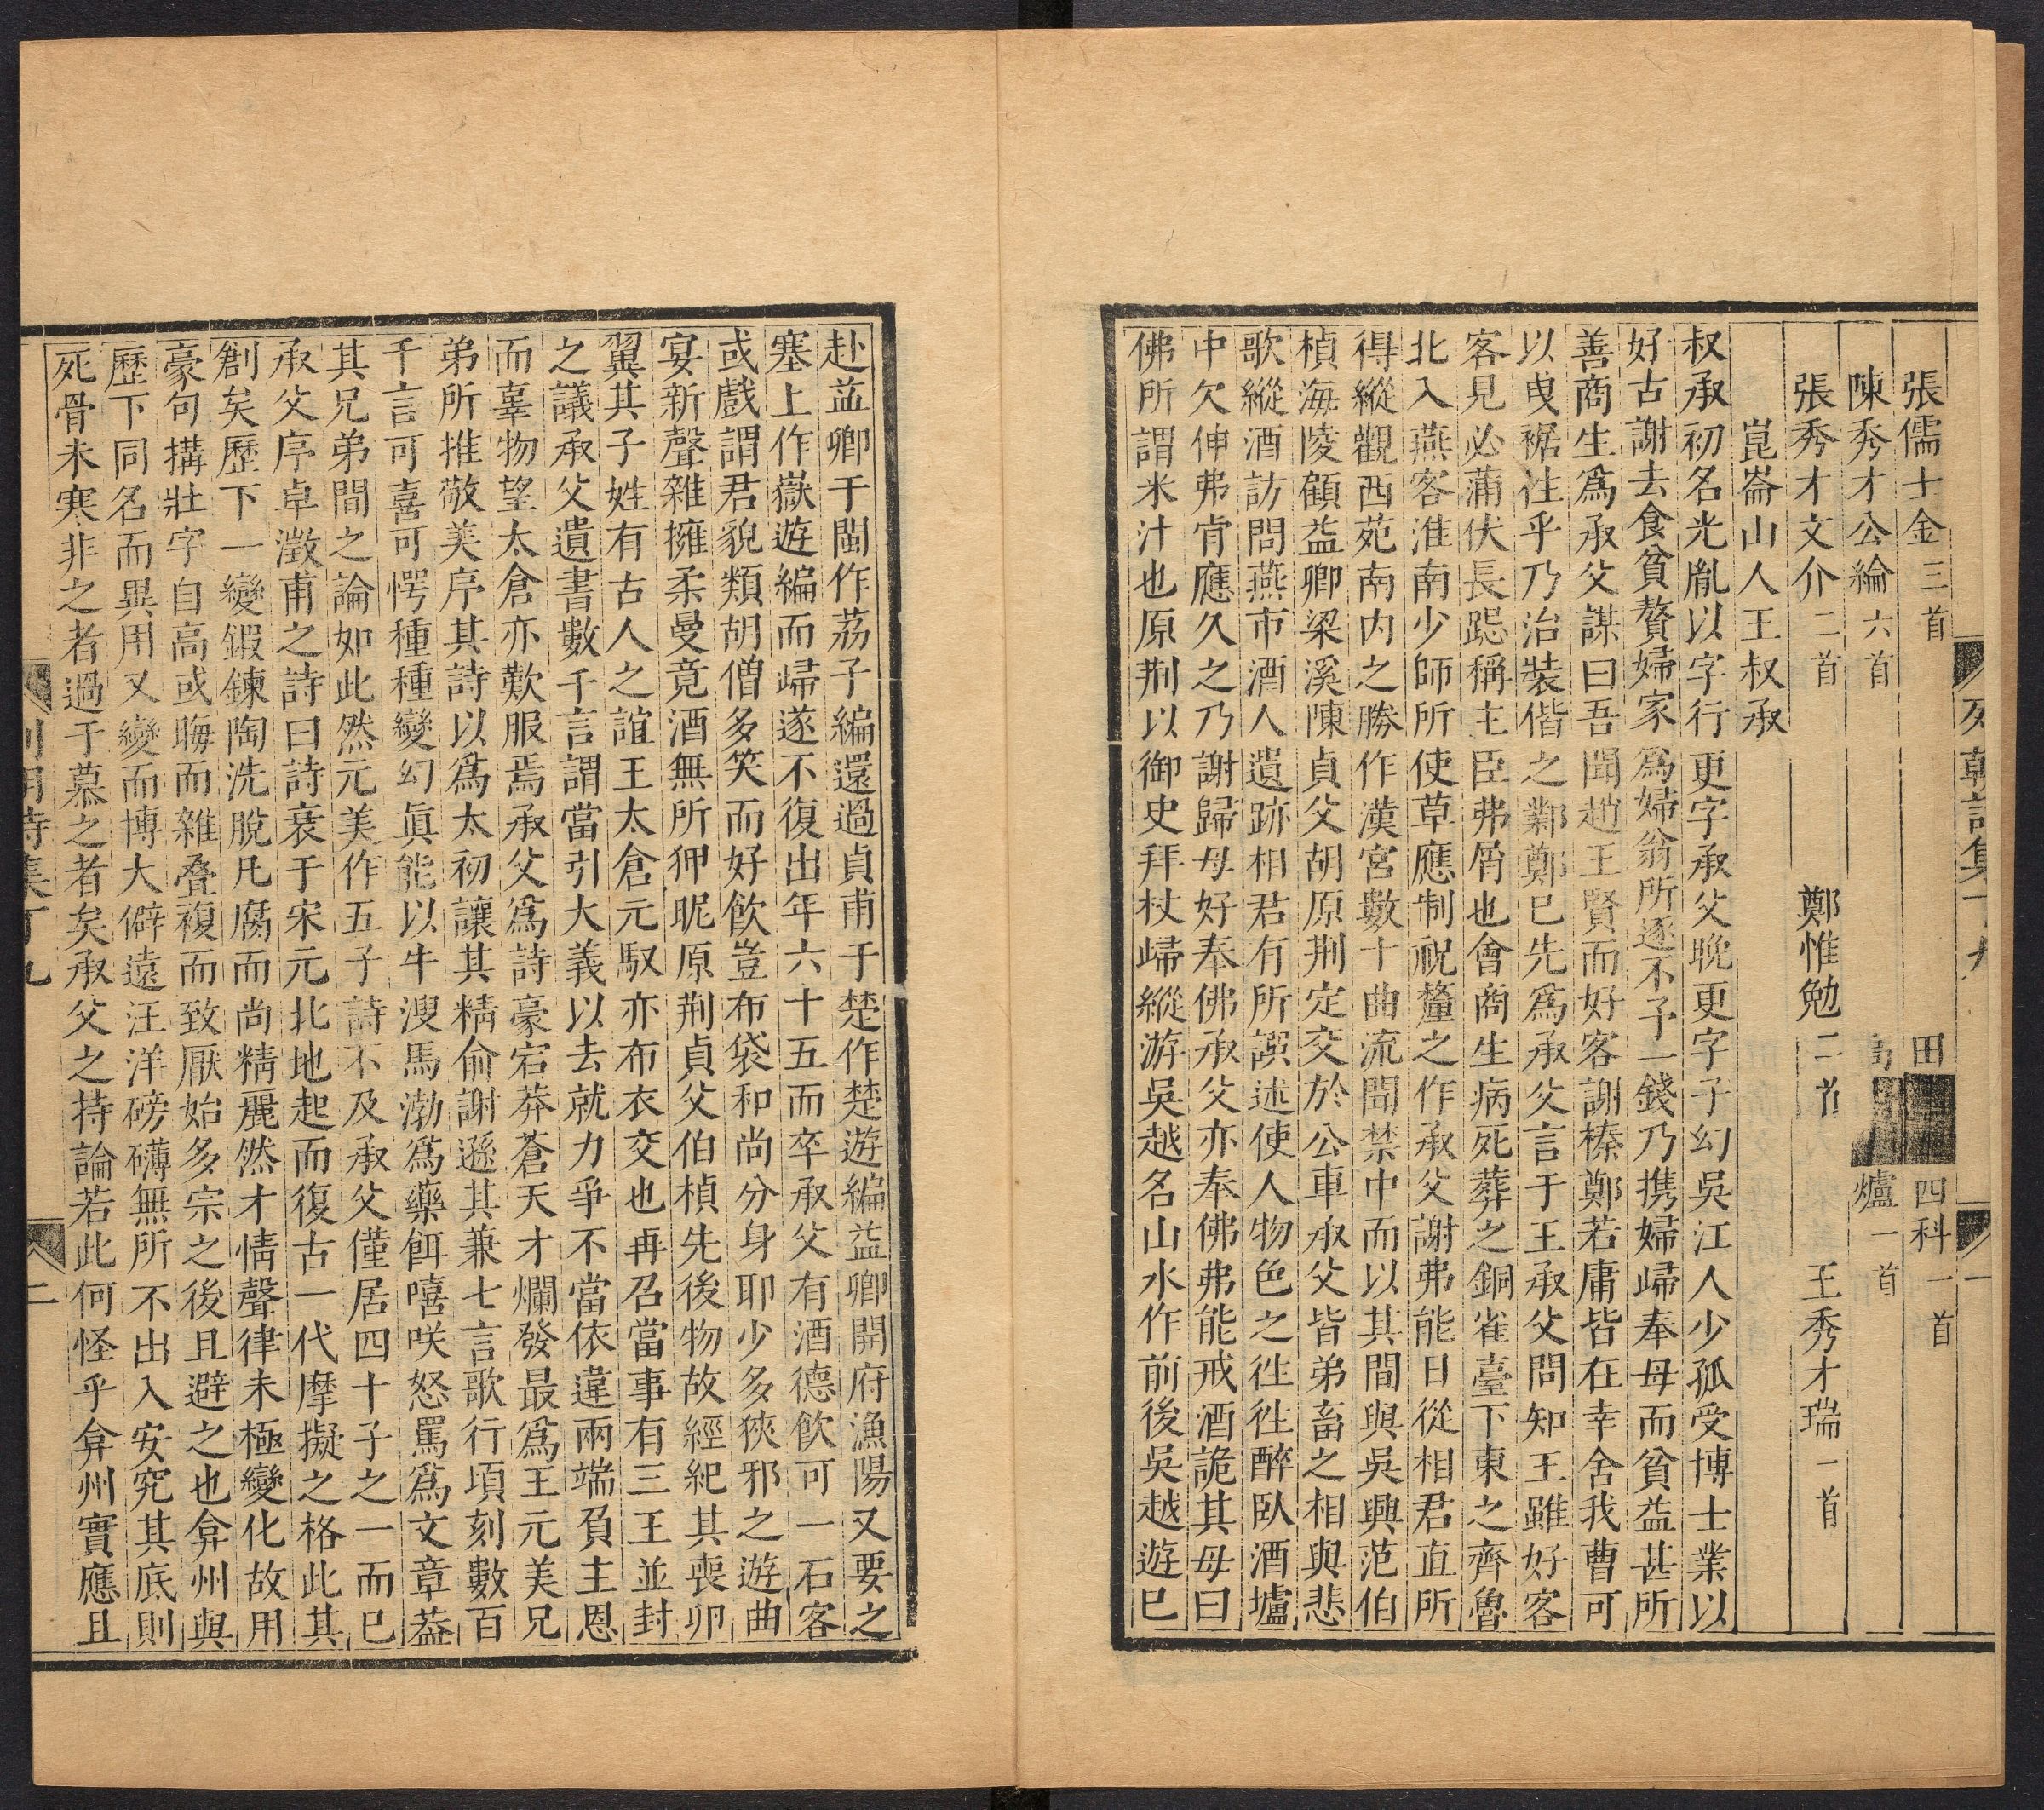 張儒士金三首　田　四科一首
陳秀才公綸六首　　爐一首
張秀才文介二首　鄭惟勉二首　王秀才瑞一首
崑崙山人王叔承
叔承初名光胤以字行更字承父晚更字子幻吳江人少孤受博士業以
好古謝去食貧贅婦家爲婦翁所逐不予一錢乃携婦歸奉母而貧益甚所
善商生爲承父謀曰吾聞趙王賢而好客謝榛鄭若庸皆在幸舍我曹可
以曳裾往乎乃治裝偕之鄴鄭已先爲承父言于王承父問知王雖好客
客見必蒲伏長跽稱主臣弗屑也會商生病死葬之銅雀臺下東之齊魯
北入燕客淮南少師所使草應制祝釐之作承父謝弗能日從相君直所
得縱觀西苑南内之勝作漢宮數十曲流聞禁中而以其間與吳興范伯
楨海陵顧益卿梁溪陳貞父胡原荆定交於公車承父皆弟畜之相與悲
歌縱酒訪問燕市酒人遺跡相君有所譔述使人物色之徃徃醉臥酒壚
中欠伸弗肯應久之乃謝歸母好奉佛承父亦奉佛弗能戒酒詭其母曰
佛所謂米汁也原荆以御史拜杖歸縱游吳越名山水作前後吳越遊已
赴益卿于閩作荔子編還過貞甫于楚作楚遊編益卿開府漁陽又要之
塞上作嶽遊編而歸遂不復出年六十五而卒承父有酒德飲可一石客
或戲謂君貌類胡僧多笑而好飲豈布袋和尚分身耶少多狹邪之遊曲
宴新聲雜擁柔曼竟酒無所狎昵原荆貞父伯楨先後物故經紀其喪卵
翼其子姓有古人之誼王太倉元馭亦布衣交也再召當事有三王並封
之議承父遺書數千言謂當引大義以去就力爭不當依違兩端負主恩
而辜物望太倉亦歎服焉承父爲詩豪宕莽蒼天才爛發最爲王元美兄
弟所推敬美序其詩以爲太初讓其精俞謝遜其兼七言歌行頃刻數百
千言可喜可愕種種變幻眞能以牛溲馬渤爲藥餌嘻咲怒罵爲文章葢
其兄弟間之論如此然元美作五子詩不及承父僅居四十子之一而已
承父序卓澂甫之詩曰詩衰于宋元北地起而復古一代摩擬之格此其
創矣歷下一變鍜鍊陶洗脫凡腐而尚精麗然才情聲律未極變化故用
豪句搆壯字自高或晦而雜叠複而致厭始多宗之後且避之也弇州與
歷下同名而異用又變而博大僻遠汪洋磅礴無所不出入安究其底則
死骨未寒非之者過于慕之者矣承父之持論若此何怪乎弇州實應且
列朝詩集丁九　二